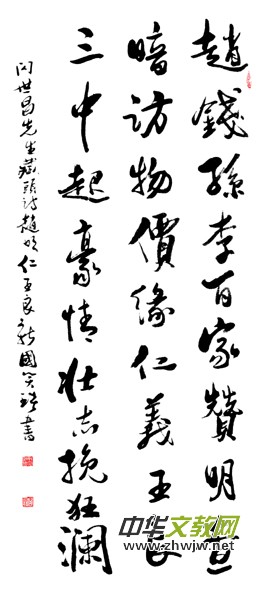 趙錢孫李百家贊明查
暗訪物價緣仁義王良
三中起豪情壯志挽狂瀾
閃世昌先生藏頭詩趙明仁王良國書
中华文教网
www.zhwjw.net